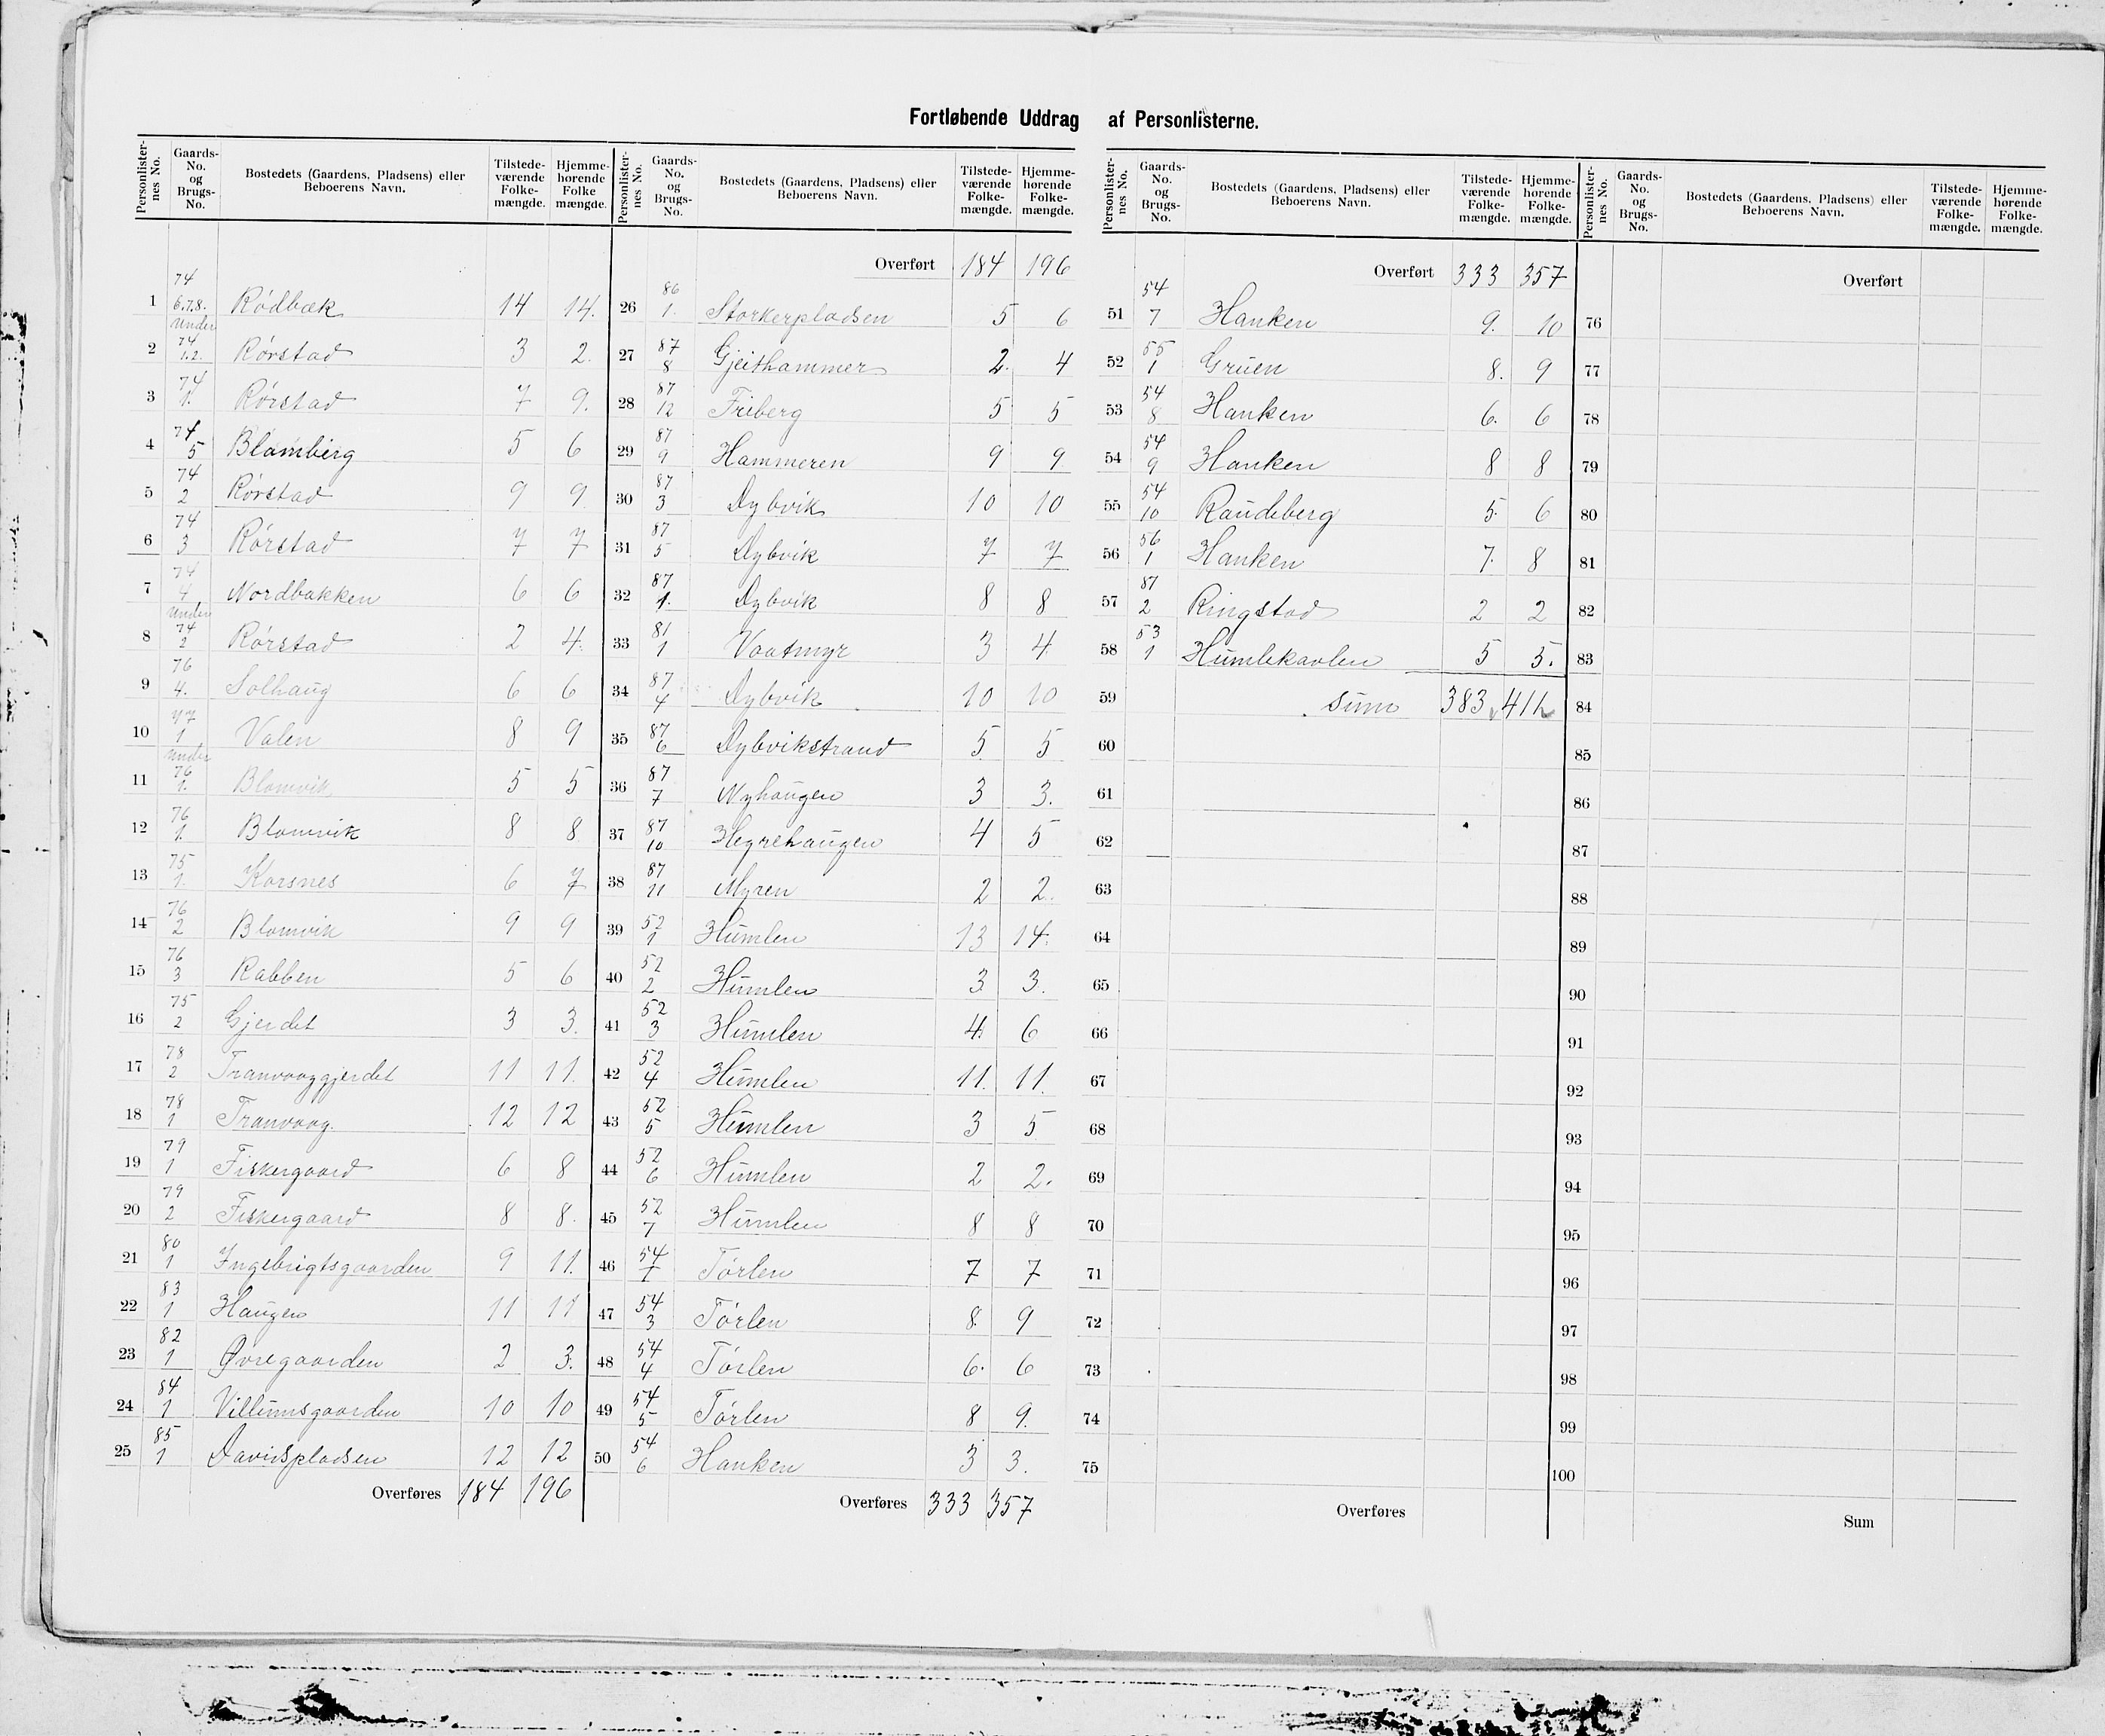 Fortløbende Uddrag af Personlisterne.
Personlisternes No. Gaards-No. og Brugs-No. Bostedets (Gaardens, Pladsens) eller Beboerens Navn. Tilstedeværende Folkemængde. Hjemmehørende Folkemængde.
1 74 6.7.8. Rødbæk 14 14.
2 Under 74 1.2. Rørstad 3 2.
3 74 1. Rørstad 7 9.
4 74 5 Blomberg 5 6
5 74 2 Rørstad 9 9
6 74 3 Rørstad 7 7
7 74 4 Nordbakken 6 6
8 Under 74 2 Rørstad 2 4.
9 76 4. Solhaug 6 6
10 77 1 Valen 8 9
11 Under 76 1. Blomvik 5 5
12 76 1. Blomvik 8 8
13 75 1. Korsnes 6 7
14 76 2 Blomvik 9 9
15 76 3 Rabben 5 6
16 75 2 Gjerdet 3 3.
17 78 2 Tranvaaggjerdet 11 11.
18 78 1 Tranvaag. 12 12
19 79 1 Fiskergaard 6 8
20 79 2 Fiskergaard 8 8.
21 80 1 Ingebrigtsgaarden 9 11.
22 83 1 Haugen 11 11
23 82 1 Øvregaarden 2 3.
24 84 1 Villumsgaarden 10 10
25 85 1 Davidspladsen 12 12
Overføres 184 196
Personlisternes No. Gaards-No. og Brugs-No. Bostedets (Gaardens, Pladsens) eller Beboerens Navn. Tilstedeværende Folkemængde. Hjemmehørende Folkemængde.
Overført 184 196
26 86 1. Storkerpladsen 5 6
27 87 8 Gjeithammer 2. 4
28 87 12 Friberg 5 5
29 87 9 Hammeren 9 9
30 87 3 Dybvik 10 10
31 87 5 Dybvik 7 7
32 87 1. Dybvik 8 8
33 81 1 Vaatmyr 3 4
34 87 4 Dybvik 10 10
35 87 6 Dybvikstrand 5 5
36 87 7 Nyhaugen 3 3.
37 87 10 Hegrehaugen 4 5
38 87 11 Myren 2 2.
39 52 1 Humlen 13 14.
40 52 2 Humlen 3 3.
41 52 3 Humlen 4 6
42 52 4 Humlen 11. 11.
43 52 5 Humlen 3 5
44 52 6 Humlen 2 2.
45 52 7 Humlen 8 8
46 54 1 Tørlen 7 7
47 54 3 Tørlen 8. 9
48 54 4 Tørlen 6. 6
49 54 5 Tørlen 8 9.
50 54 6 Hanken 3 3.
Overføres 333 357
Personlisternes No. Gaards-No. og Brugs-No. Bostedets (Gaardens, Pladsens) eller Beboerens Navn. Tilstedeværende Folkemængde. Hjemmehørende Folkemængde.
Overført 333 357
51 54 7 Hanken 9. 10
52 55 1 Gruen 8. 9
53 54 8 Hanken 6. 6
54 54 9 Hanken 8 8
55 54 10 Raudeberg 5. 6
56 56 1 Hanken 7. 8
57 87 2 Ringstad 2 2
58 53 1 Humlekavlen 5 5.
59 Sum 383
60
61
62
63
64
65
66
67
68
69
70
71
72
73
74
75
Overføres
Personlisternes No. Gaards-No. og Brugs-No. Bostedets (Gaardens, Pladsens) eller Beboerens Navn. Tilstedeværende Folkemængde. Hjemmehørende Folkemængde.
Overført
76
77
78
79
80
81
82
83
84
85
86
87
88
89
90
91
92
93
94
95
96
97
98
99
100
Sum